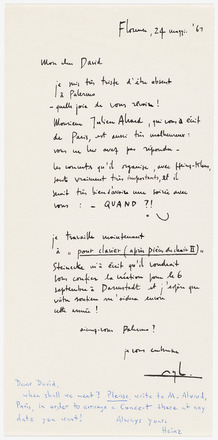 Florence, 24 maggi. '61
Mon cher David
je suis très triste d'être absent
à Palermo
- quelle joie de vous revoir!
Monsieur Julien Alvard, qui vous a écrit
de Paris, est aussi très malheureux:
vous ne lui avez pas répondu -
les concerts qu'il organise, avec
sont vraiment très importants, et il
serait très bien d'avoir une soirée avec
vous : - QUAND ?!
je travaille maintenant
à "pour clavier (après pièces de chair II)"
Steinecke m'a écrit qu'il voudrait
vous confier la création pour le 6
septembre à Darmstadt et j'espère que
votre soutien m'aidera encore
cette année!
aimez-vous Palermo?
je vous embrasse
Dear David,
when shall we meet? Please write to M. Alvard,
Paris, in order to arrange a Concert there at any
date you want! Always yours
Heinz